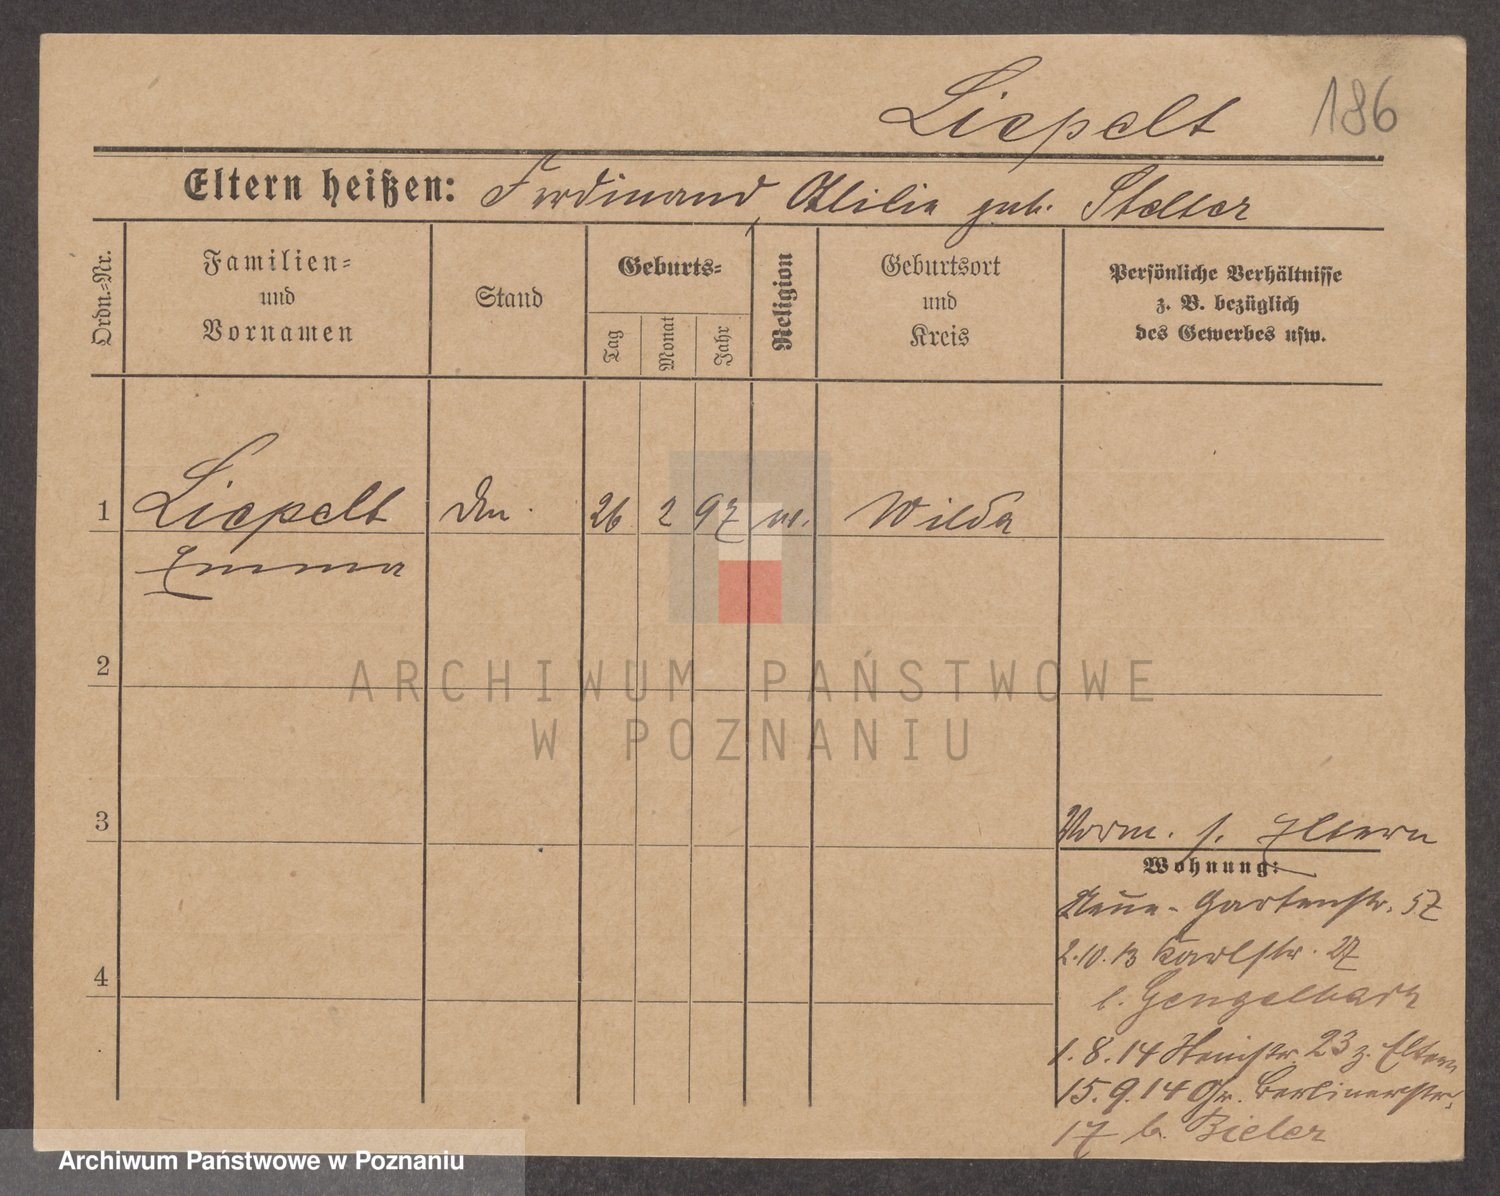 Liepelt 186
Eltern heißen: Ferdinand, Ottilie geb. Stelter
Ordn.-Nr.
Familien-
und
Vornamen
Stand
Geburts-
Tag
Monat
Jahr
Religion
Geburtsort
und
Kreis
Persönliche Verhältnisse
z. B. bezüglich
des Gewerbes usw.
1 Liepelt 26 2 97 Wilda
Emma
2
ARCHIWUM PAŃSTWOWE
W POZNANIU
3
Vorm. s. Eltern
Wohnung:
Neue-Gartenstr. 57
2.10.13 Karlstr. 27
b. Gengelbach
4
1.8.14 23 z. Eltern
15.9.14 Gr. Berlinerstr.
17 b. Bieler
Archiwum Państwowe w Poznaniu